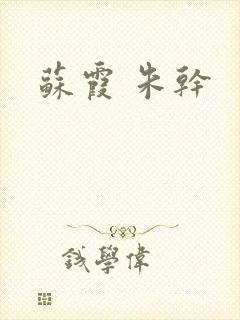 蘇霞 朱幹
錢學偉